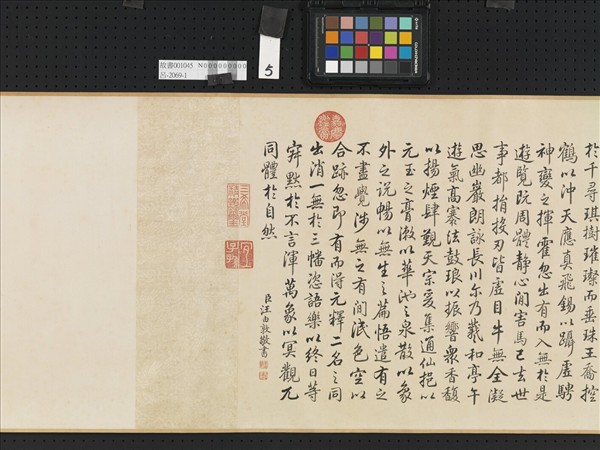 故書001045 N000000000
呂-2069-1
5
於千尋琪樹璀璨而垂珠王喬控
鶴以沖天應真飛錫以躡虛騁
神變之揮霍忽出有而入無於是
遊覽既周體靜心閒害馬已去世
事都捐投刃皆虛目牛無全凝
思幽巖朗詠長川尓乃羲和亭午
遊氣高褰法鼓琅以振響眾香馥
以揚煙肆覲天宗爰集通仙挹以
元玉之膏漱以華池之泉散以象
外之說暢以無生之篇悟遣有之
不盡覺涉無之有間泯色空以
合跡忽即有而得元釋二名之同
出消一無於三幡恣語樂以終日等
寂默於不言渾萬象以冥觀兀
同體於自然
臣汪由敦敬書
嘉慶鑑賞
三希堂精鑑璽
宜子孫